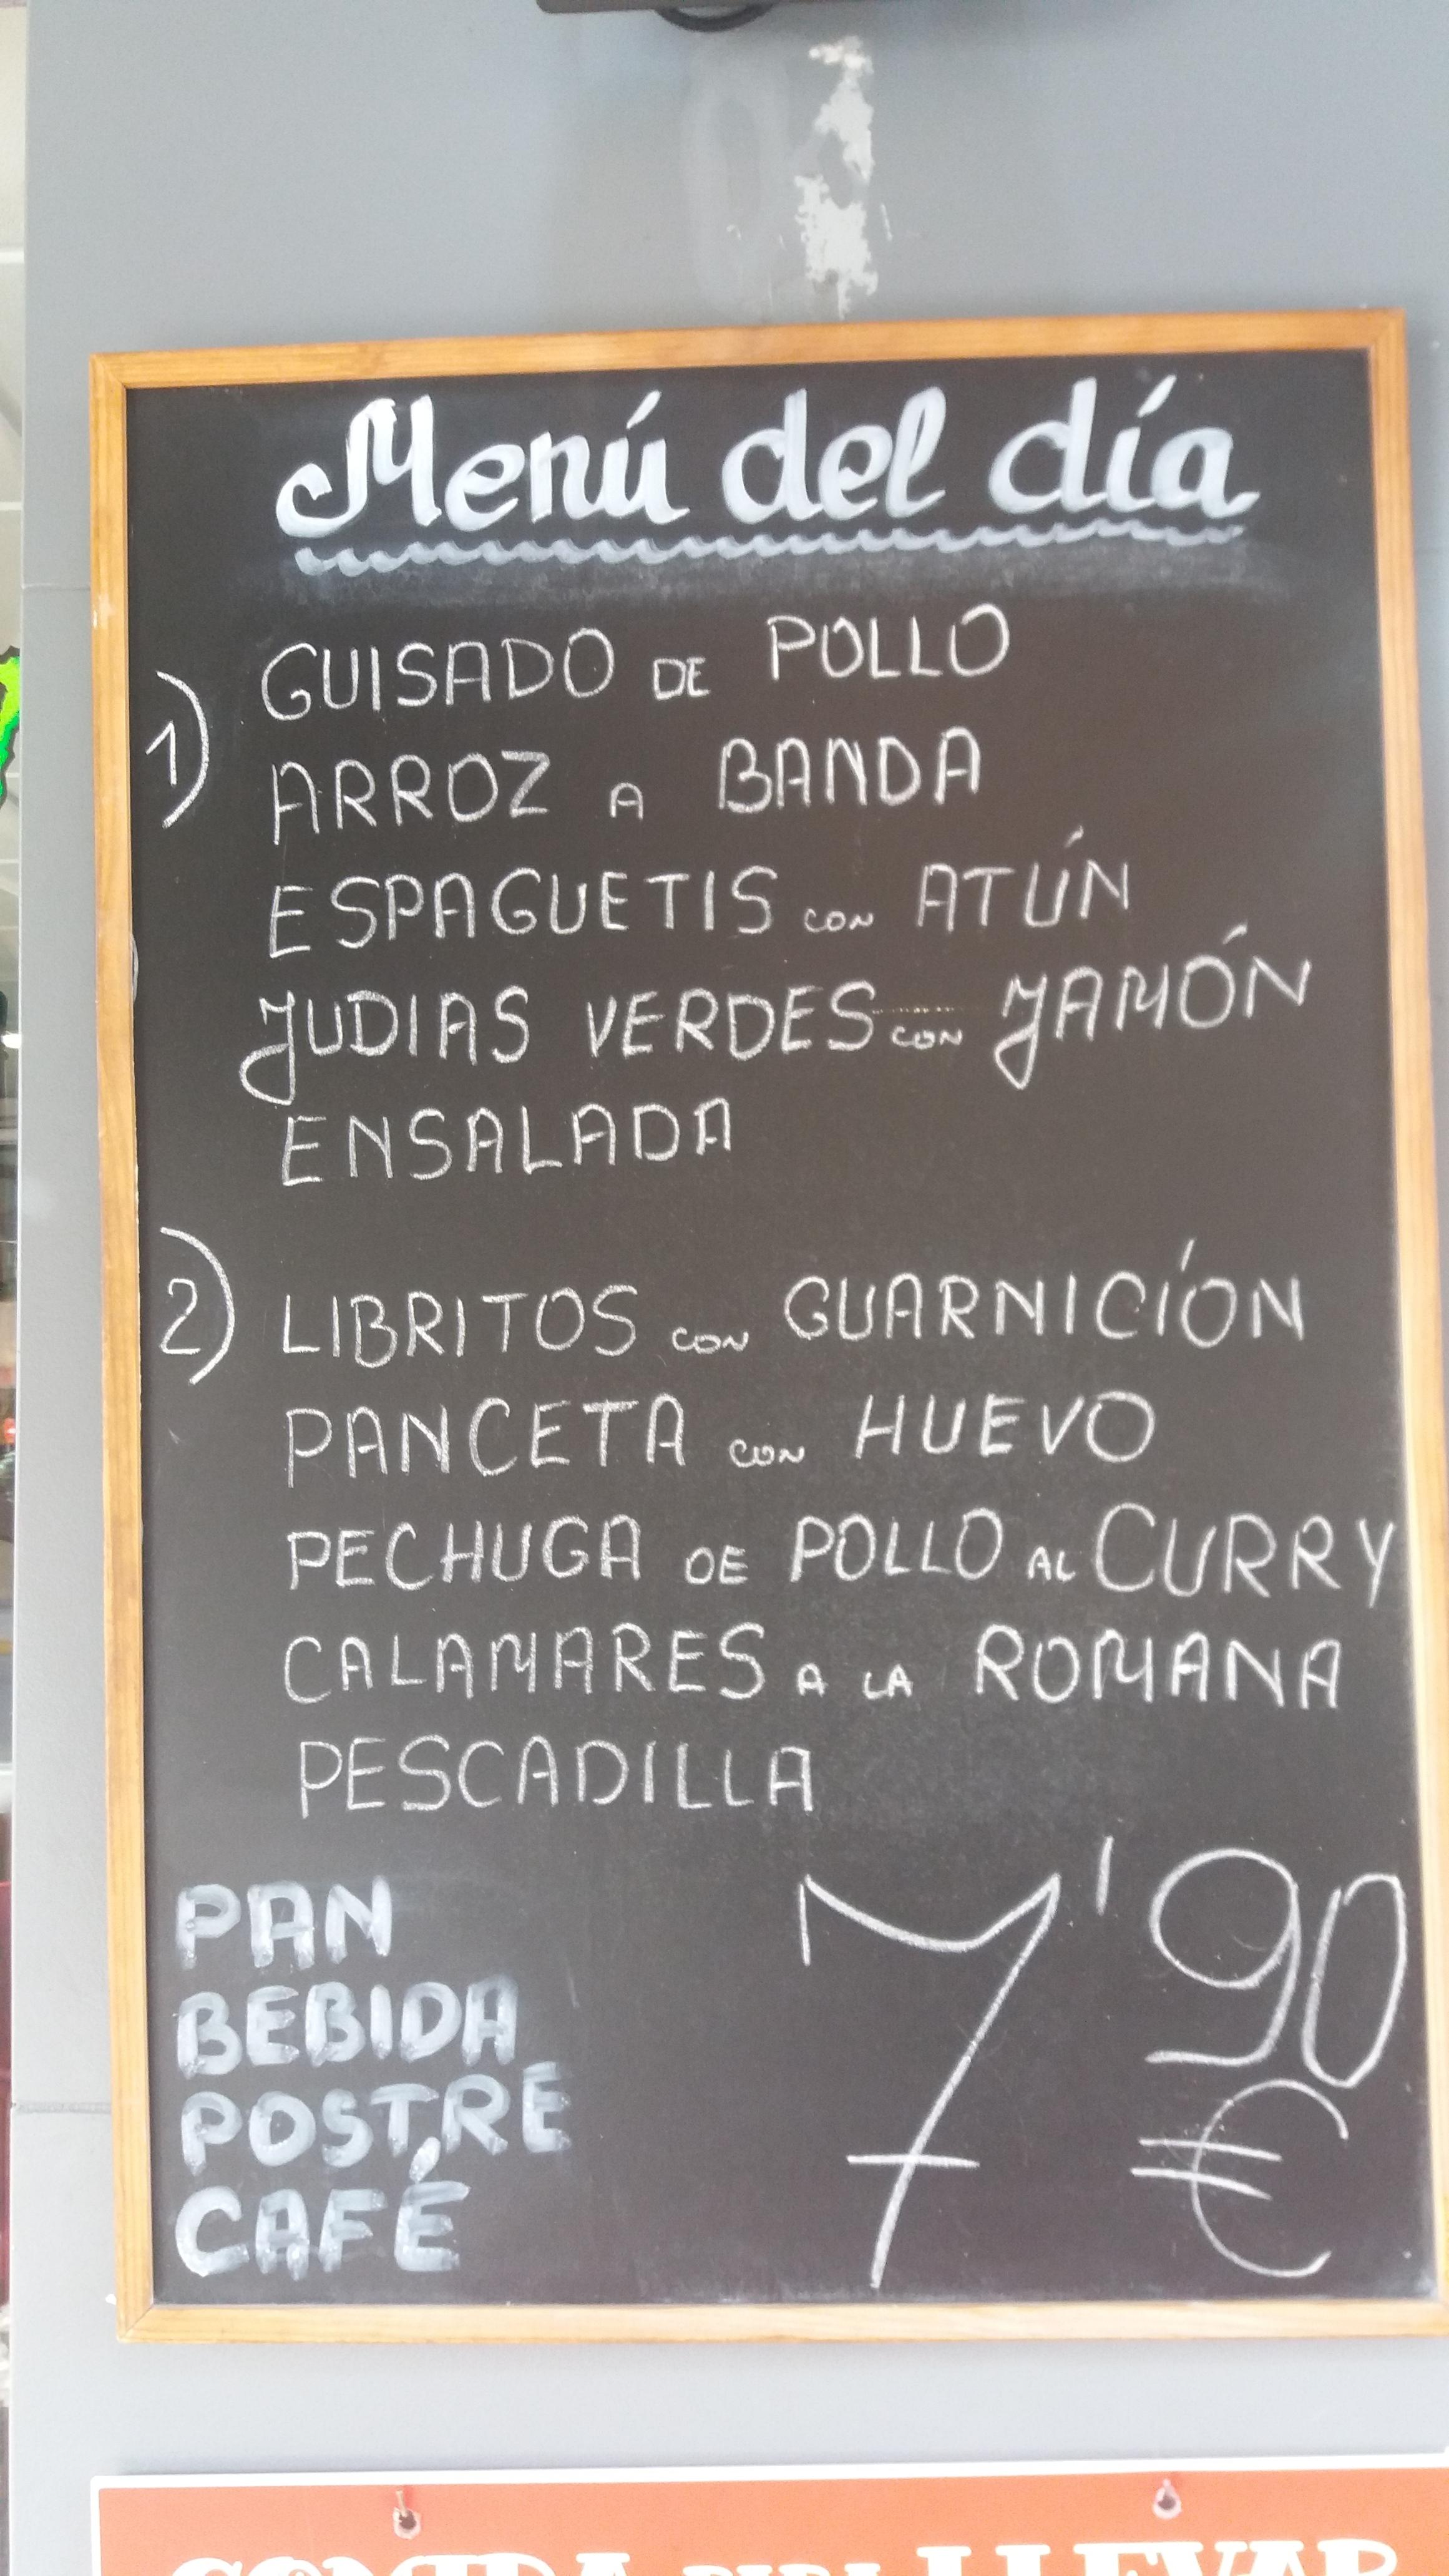 Menú del día
1) GUISADO DE POLLO
ARROZ A BANDA
ESPAGUETIS CON ATÚN
JUDIAS VERDES CON JAMÓN
ENSALADA
2) LIBRITOS CON GUARNICÍON
PANCETA CON HUEVO
PECHUGA DE POLLO AL CURRY
CALAMARES A LA ROMANA
PESCADILLA
PAN
BEBIDA
POSTRE
CAFÉ
7'90 €
COMIDA PARA LLEVAR